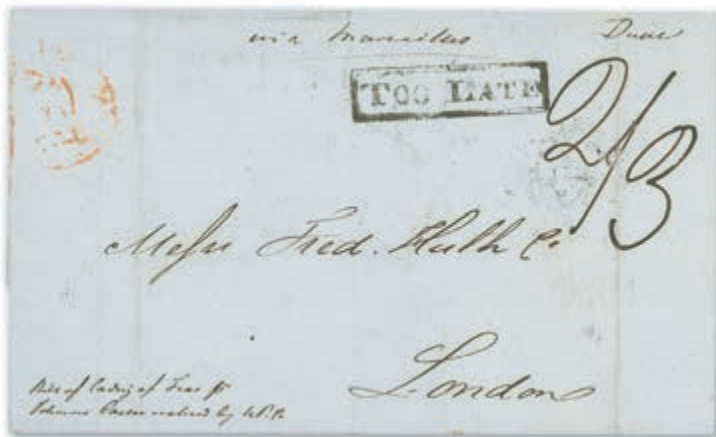 via Marseilles
TOO LATE
2/3
Messrs Fred. Huth Co
London
Bill of Lading of Teas pr
received by